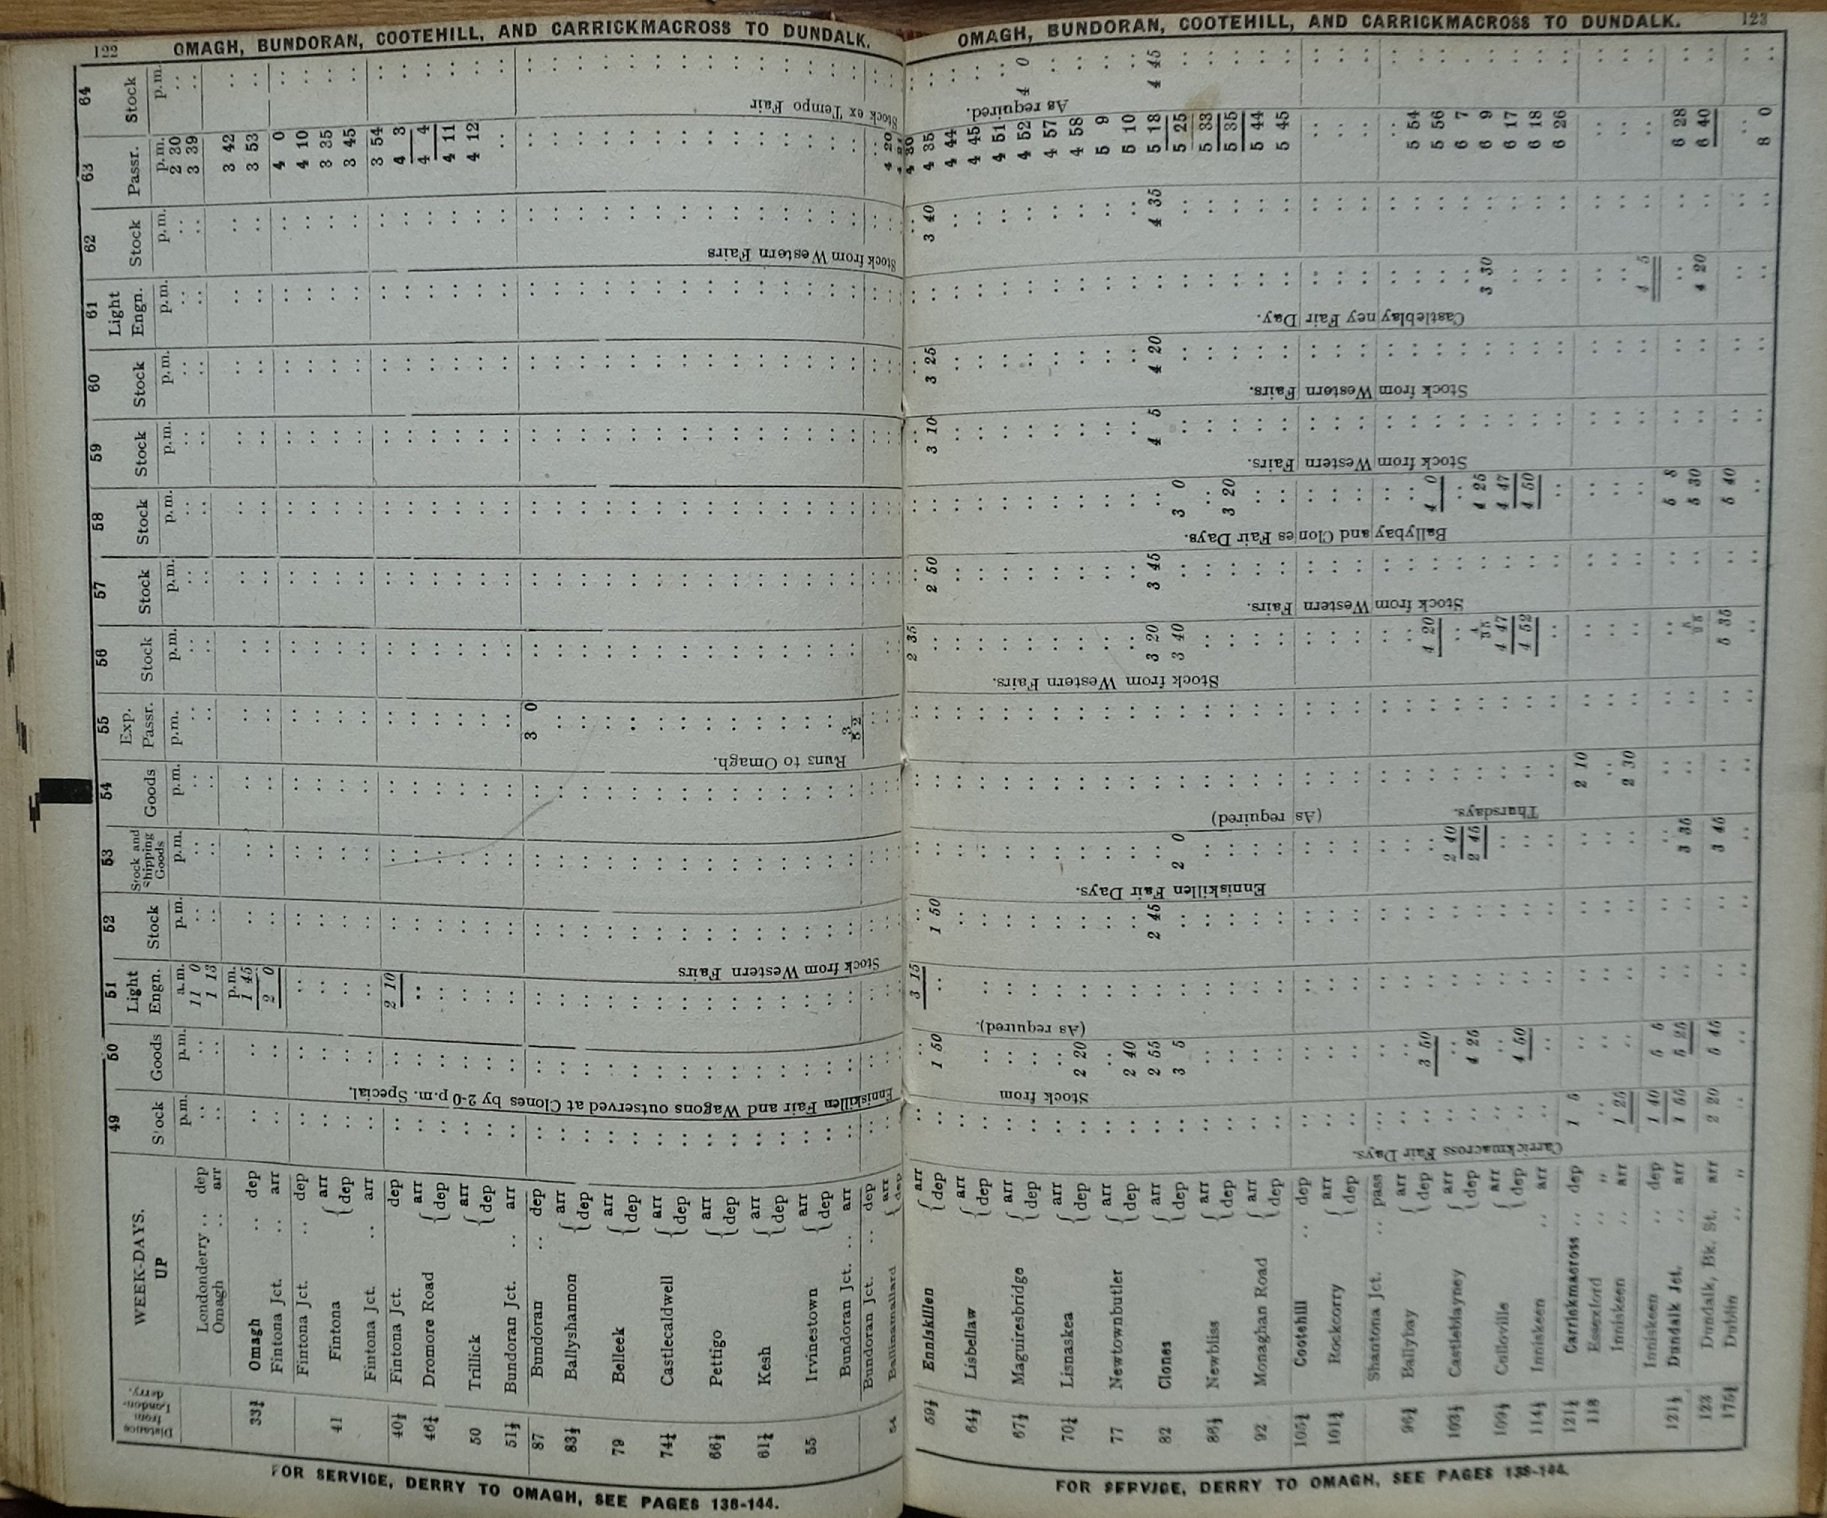 122
OMAGH, BUNDORAN, COOTEHILL, AND CARRICKMACROSS TO DUNDALK.
Distance from Londonderry.
WEEK-DAYS. UP
49 50 51 52 53 54 55 56 57 58 59 60 61 62 63 64
Stock Goods Light Engn. Stock Stock and Shipping Goods Goods Exp. Passr. Stock Stock Stock Stock Stock Light Engn. Stock Passr. Stock
p.m. p.m. a.m. p.m. p.m. p.m. p.m. p.m. p.m. p.m. p.m. p.m. p.m. p.m. p.m. p.m.
Londonderry .. dep 11 0 2 30
Omagh .. arr 1 13 3 39
p.m.
33¾ Omagh .. dep 1 45 3 42
Fintona Jct. .. arr 2 0 3 53
Fintona Jct. .. dep 4 0
41 Fintona { arr 4 10
dep 3 35
Fintona Jct. .. arr 3 45
40½ Fintona Jct. dep 2 10 3 54
46¾ Dromore Road { arr 4 3
dep 4 4
50 Trillick { arr 4 11
dep 4 12
51½ Bundoran Jct. .. arr
87 Bundoran .. dep 3 0
83½ Ballyshannon { arr
dep
79 Belleek { arr
dep
74¾ Castlecaldwell { arr
dep
66½ Pettigo { arr
dep
61¾ Kesh { arr
dep
55 Irvinestown { arr
dep
Bundoran Jct. .. arr 3 52
Bundoran Jct. .. dep
54 Ballinamallard { arr 4 20
dep
Enniskillen Fair and Wagons outserved at Clones by 2-0 p.m. Special.
Stock from Western Fairs
Runs to Omagh.
Stock from Western Fairs
Stock ex Tempo Fair
FOR SERVICE, DERRY TO OMAGH, SEE PAGES 138-144.
OMAGH, BUNDORAN, COOTEHILL, AND CARRICKMACROSS TO DUNDALK.
123
59½ Enniskillen { arr 3 15 2 35 4 30
dep 1 50 1 50 2 50 3 10 3 25 3 40 4 35
64½ Lisbellaw { arr 4 44
dep 4 45
67½ Maguiresbridge { arr 4 51
dep 4 52 4 0
70¾ Lisnaskea { arr 4 57
dep 2 20 4 58
77 Newtownbutler { arr 5 9
dep 2 40 5 10
82 Clones { arr 2 55 2 45 3 20 3 45 4 5 4 20 4 35 5 18 4 45
dep 3 5 2 0 3 40 3 0 5 25
86½ Newbliss { arr 5 33
dep 3 20 5 35
92 Monaghan Road { arr 5 44
dep 5 45
105¾ Cootehill .. dep
101¾ Rockcorry { arr
dep
Shantona Jct. .. pass
96¾ Ballybay { arr 5 54
dep 3 50 4 20 4 0 5 56
103½ Castleblayney { arr 2 40 6 7
dep 4 25 2 45 4 35 4 25 3 30 6 9
109½ Culloville { arr 4 47 4 47 6 17
dep 4 50 4 52 4 50 6 18
114½ Inniskeen .. arr 6 26
121½ Carrickmacross .. dep 1 5 2 10
118 Essexford .. "
Inniskeen .. arr 1 25 2 30
Inniskeen .. dep 1 40 5 5 4 5
121½ Dundalk Jct. .. arr 1 55 5 25 3 35 5 30 4 20 6 28
6 40
123 Dundalk, Bk. St. arr 2 20 5 45 3 45 5 35 5 40
175¾ Dublin .. " 8 0
Carrickmacross Fair Days.
Stock from
(As required).
Enniskillen Fair Days.
(As required)
Thursdays.
Stock from Western Fairs.
Stock from Western Fairs.
Ballybay and Clones Fair Days.
Stock from Western Fairs.
Stock from Western Fairs.
Castleblayney Fair Day.
As required.
FOR SERVICE, DERRY TO OMAGH, SEE PAGES 138-144.